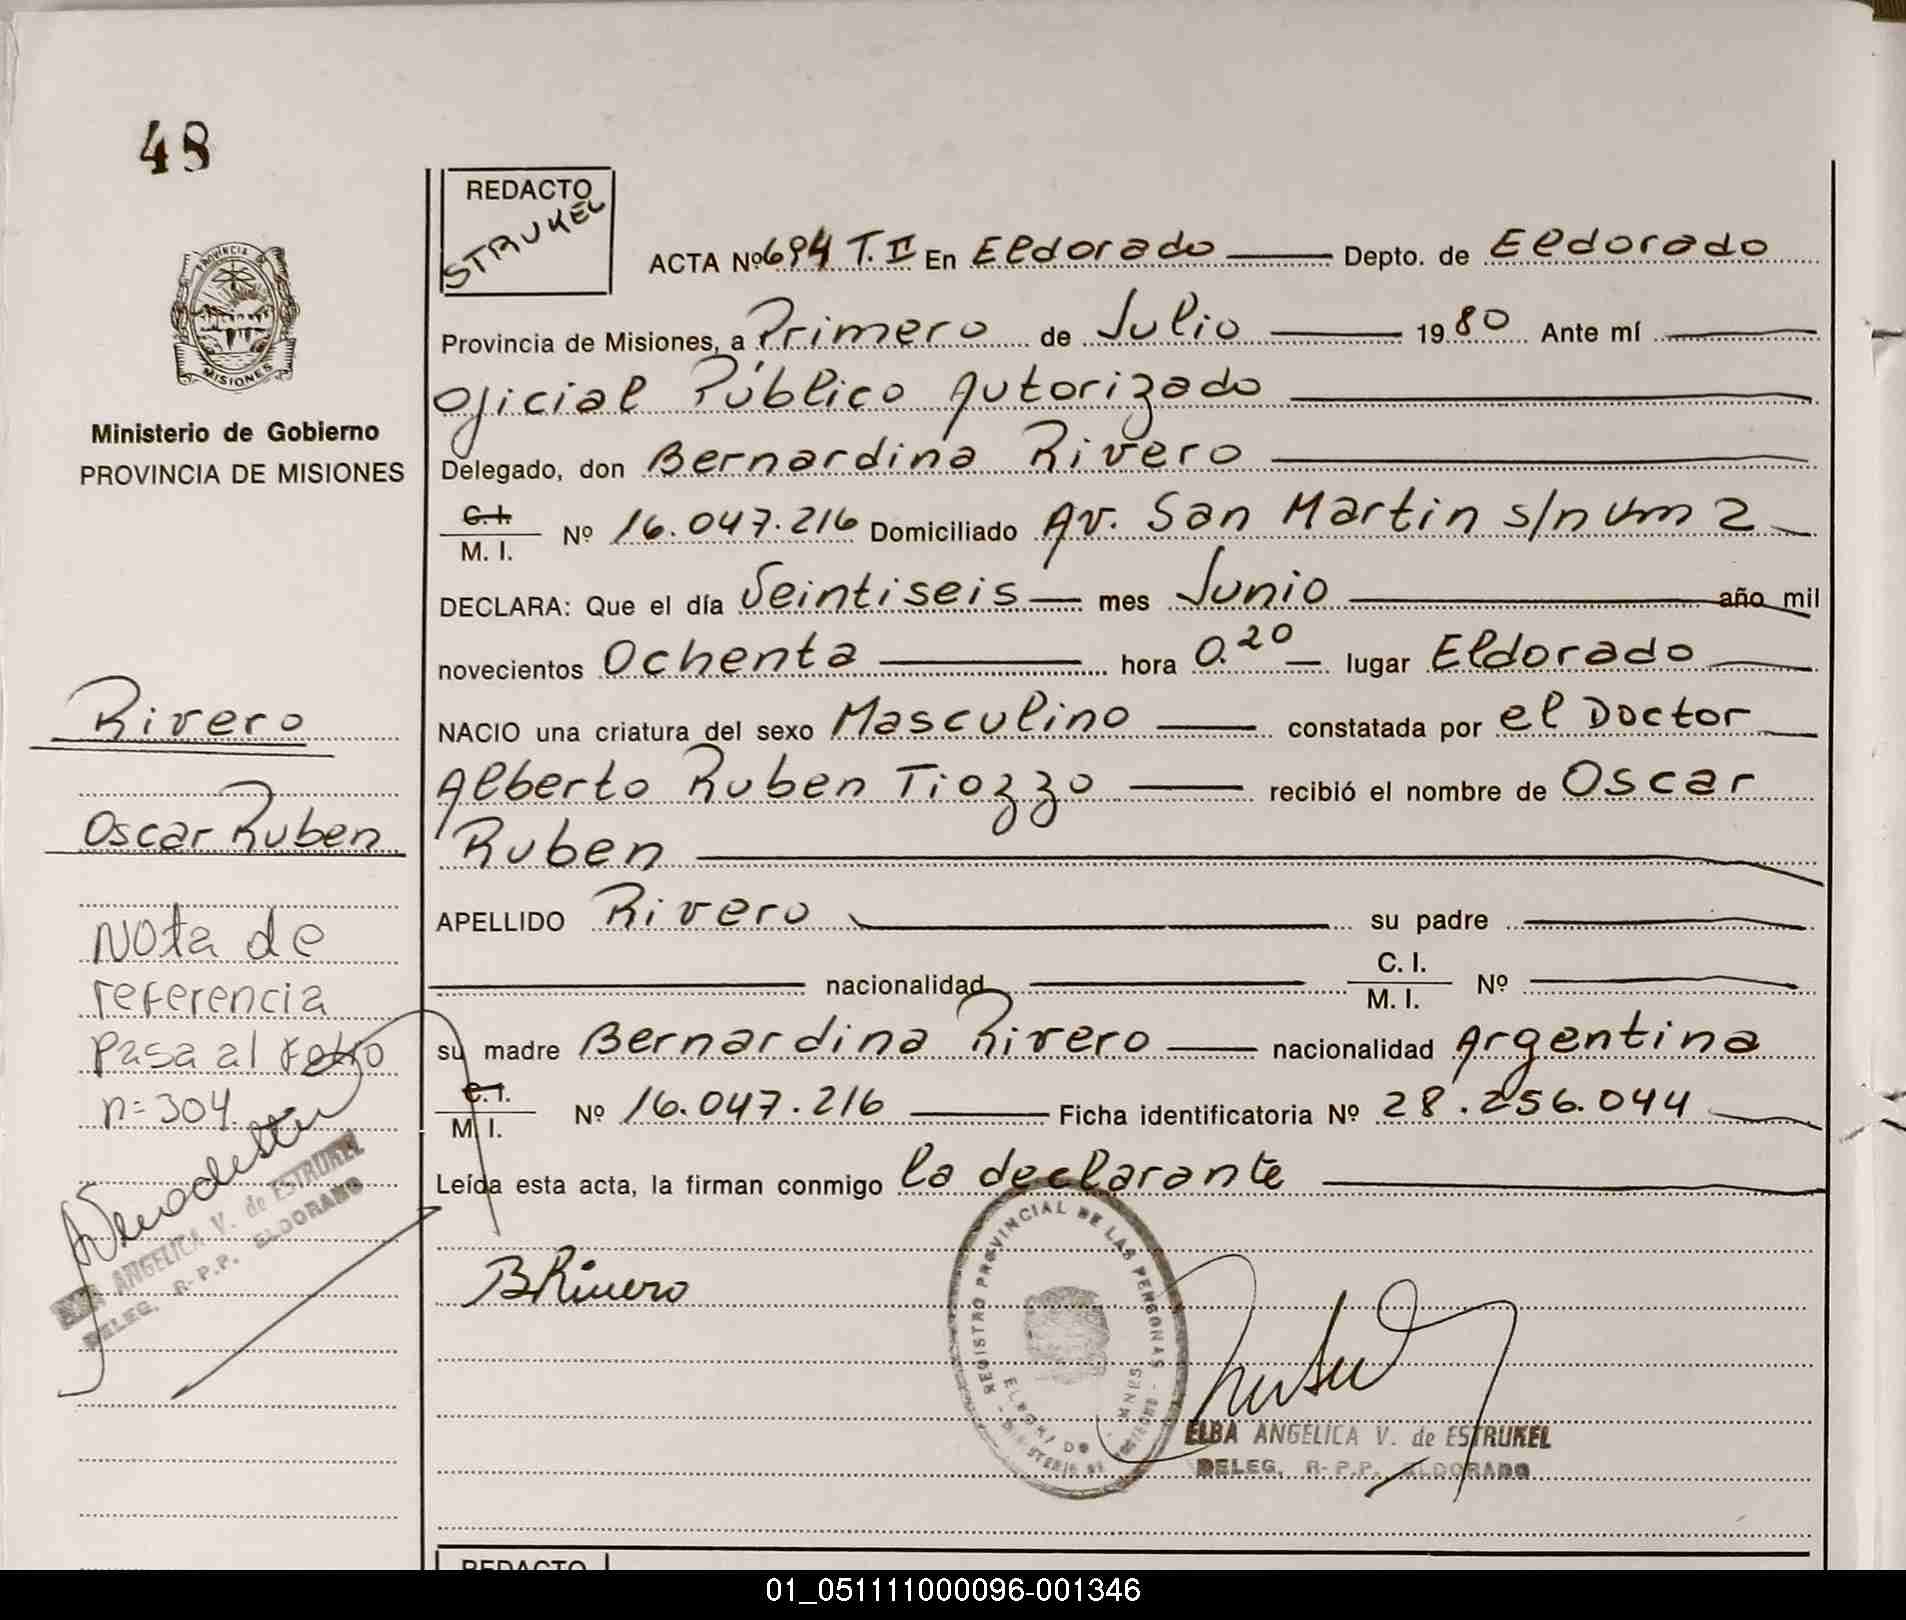 48
REDACTO
STRUKEL
ACTA Nº 694 T. II En Eldorado Depto. de Eldorado
Provincia de Misiones, a Primero de Julio 1980 Ante mí
Oficial Público Autorizado
Delegado, don Bernardina Rivero
C.I. M. I. Nº 16.047.216 Domiciliado Av. San Martin s/n um 2
DECLARA: Que el día Veintiseis mes Junio año mil
novecientos Ochenta hora 0.20 lugar Eldorado
NACIO una criatura del sexo Masculino constatada por el Doctor
Alberto Ruben Tiozzo recibió el nombre de Oscar
Ruben
APELLIDO Rivero su padre
nacionalidad C. I. M. I. Nº
su madre Bernardina Rivero nacionalidad Argentina
C.I. M. I. Nº 16.047.216 Ficha identificatoria Nº 28.256.044
Leída esta acta, la firman conmigo la declarante
B Rivero
REGISTRO PROVINCIAL DE LAS PERSONAS
ELBA ANGELICA V. de ESTRUKEL
DELEG. R-P.P. ELDORADO
PROVINCIA
MISIONES
Ministerio de Gobierno
PROVINCIA DE MISIONES
Rivero
Oscar Ruben
Nota de
referencia
Pasa al Folio
n=304
ELBA ANGELICA V. de ESTRUKEL
DELEG. R-P.P. ELDORADO
REDACTO
01_051111000096-001346